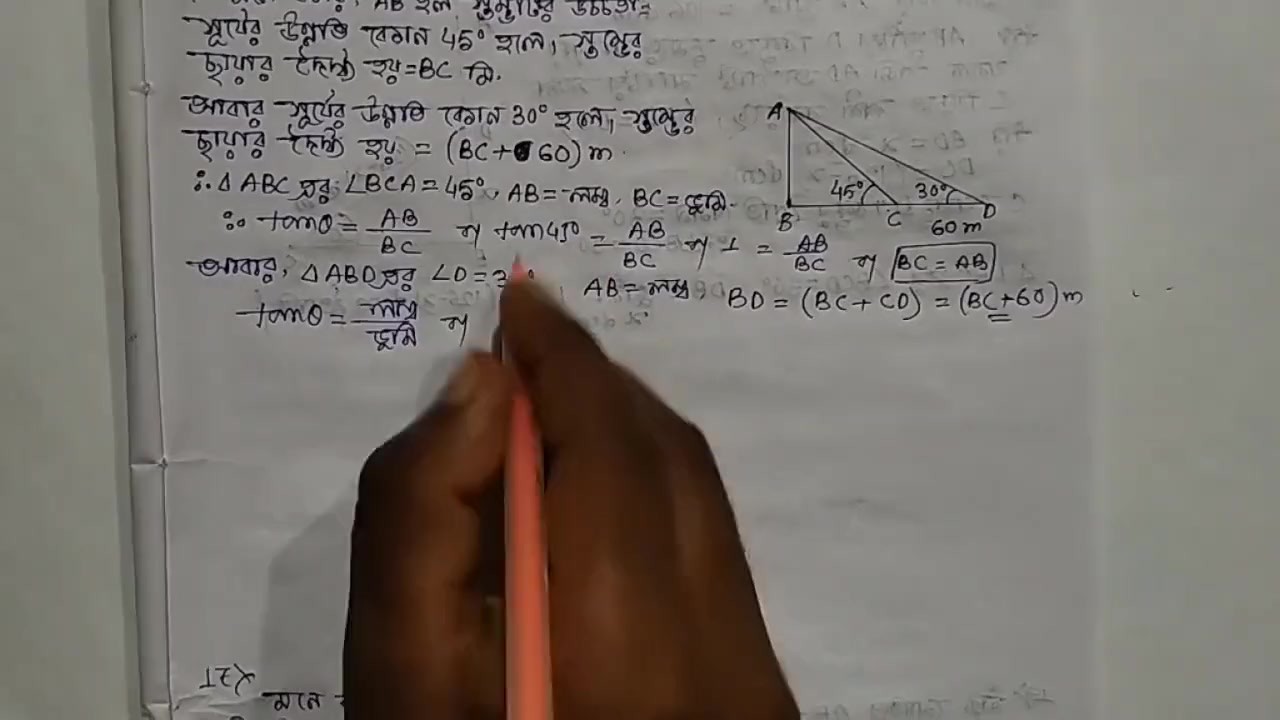 AB হল স্তম্ভটির উচ্চতা
সূর্যের উন্নতি কোন 45° হলে, স্তম্ভের
ছায়ার দৈর্ঘ্য হয় = BC মি.
আবার সূর্যের উন্নতি কোন 30° হলে, স্তম্ভের
ছায়ার দৈর্ঘ্য হয় = (BC+60) m.
∴ Δ ABC এর ∠BCA = 45°, AB = লম্ব, BC = ভূমি.
∴ tanθ = AB/BC বা tan45° = AB/BC বা 1 = AB/BC বা BC = AB
আবার, Δ ABD এর ∠D = AB = লম্ব, BD = (BC + CD) = (BC+60) m
tanθ = লম্ব/ভূমি বা
A
45° 30°
B C D
60 m
মনে